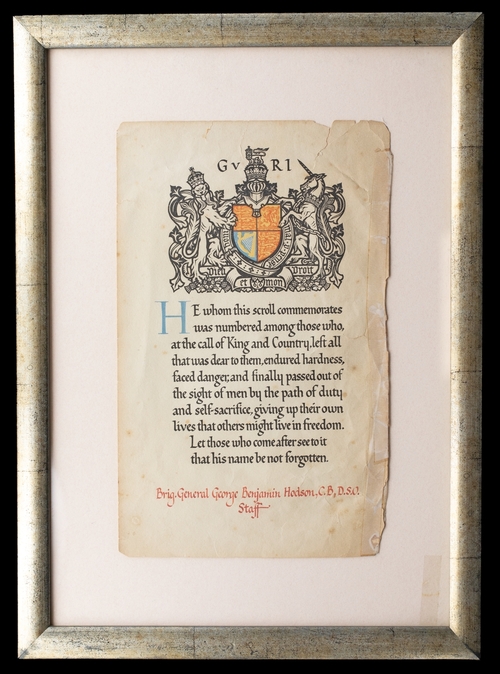 GV RI
Dieu et mon Droit
HE whom this scroll commemorates
was numbered among those who,
at the call of King and Country, left all
that was dear to them, endured hardness,
faced danger, and finally passed out of
the sight of men by the path of duty
and self-sacrifice, giving up their own
lives that others might live in freedom.
Let those who come after see to it
that his name be not forgotten.
Brig. General George Benjamin Hodson, C.B., D.S.O.
Staff